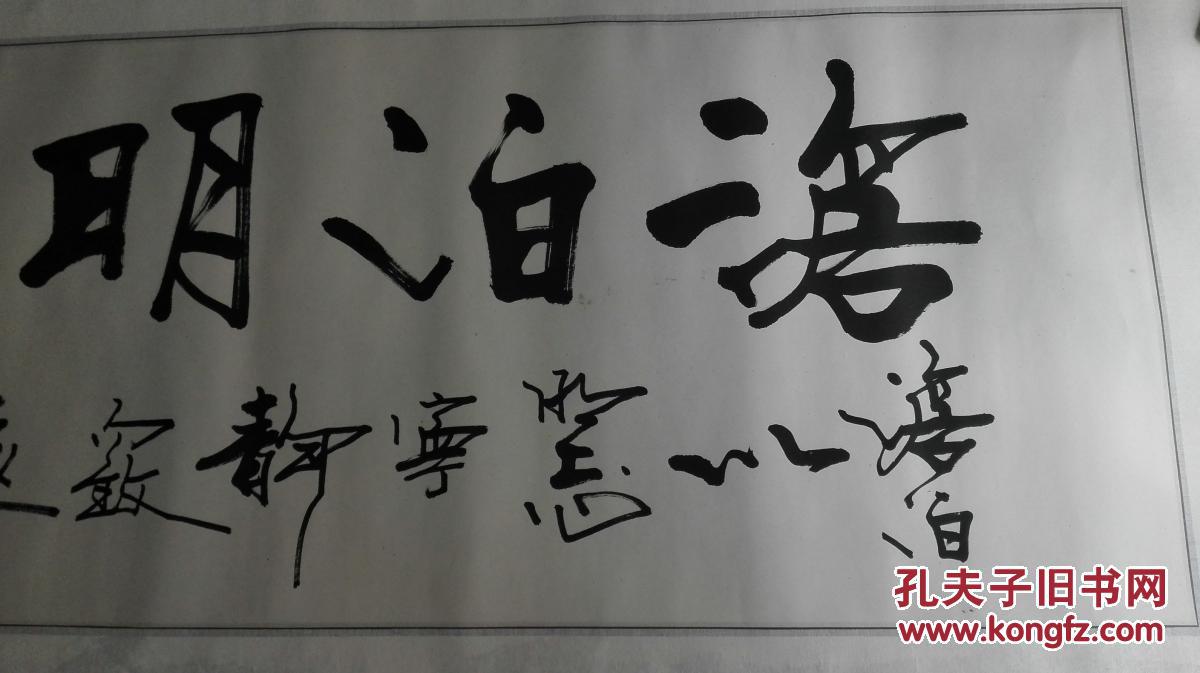 澹泊明
澹泊以明志寧靜以致遠
孔夫子旧书网
www.kongfz.com